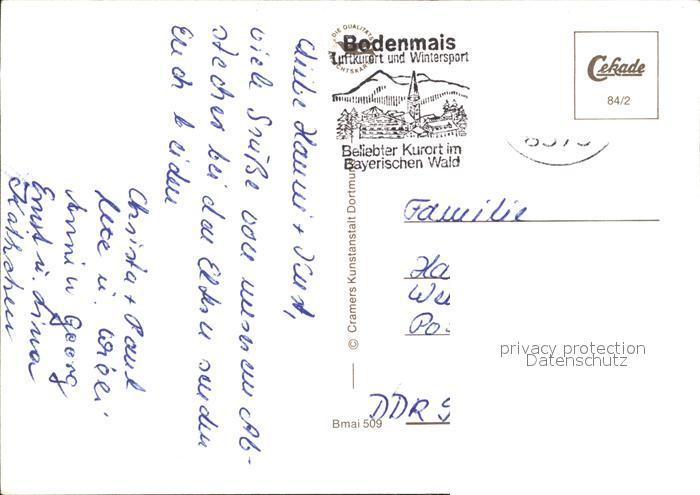 Liebe Hanni + Kurt,
viele Grüße von unserem Ab-
stecher bei den Eltern senden
Euch beiden
Christa + Paul
Ute u.
Anni u Georg
Ernst u. Lina
Käthchen
DIE QUALITÄTS
Bodenmais
Luftkurort und Wintersport
Beliebter Kurort im
Bayerischen Wald
© Cramers Kunstanstalt Dortmund
Bmai 509
Cekade
84/2
8373
Familie
Ha
We
Po
DDR 9
privacy protection
Datenschutz